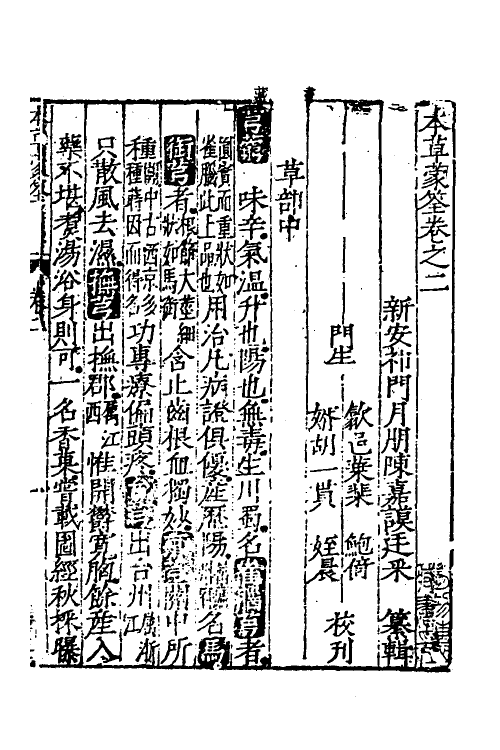 本草蒙筌卷之二
新安祁門月朋陳嘉謨廷采 纂輯
門生 歙邑葉棐 鮑倚
壻胡一貫 姪晨 校刊
草部中
芎藭 味辛氣溫升也陽也無毒生川蜀名雀腦芎者
圓實而重狀如雀腦此上品也 用治凡病證俱優產歷陽 名馬
銜芎者 根節大莖細狀如馬銜 含止齒根血獨妙 京芎關中所
種 關中古西京多種蒔因而得名 功專療偏頭疼 台芎出台州 屬浙江
只散風去濕撫芎出撫郡 屬江西 惟開鬱寬胸餘產入
藥不堪煮湯浴身則可一名香菓嘗載圖經秋採曝